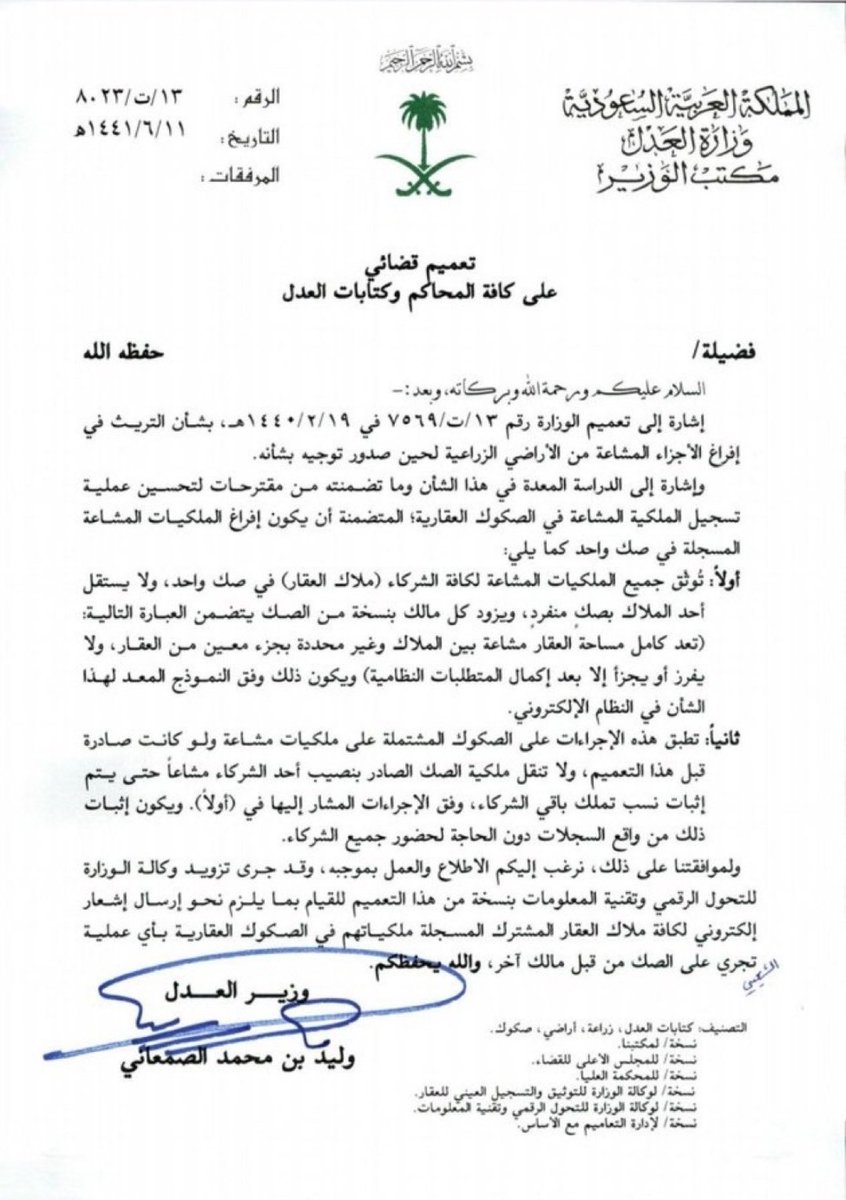 بسم الله الرحمن الرحيم
المملكة العربية السعودية
وزارة العدل
مكتب الوزير
الرقم: ١٣/ت/٨٠٢٣
التاريخ: ١٤٤١/٦/١١هـ
المرفقات:
تعميم قضائي
على كافة المحاكم وكتابات العدل
فضيلة/ حفظه الله
السلام عليكم ورحمة الله وبركاته، وبعد:-
إشارة إلى تعميم الوزارة رقم ١٣/ت/٧٥٦٩ في ١٤٤٠/٢/١٩هـ، بشأن التريث في
إفراغ الأجزاء المشاعة من الأراضي الزراعية لحين صدور توجيه بشأنه.
وإشارة إلى الدراسة المعدة في هذا الشأن وما تضمنته من مقترحات لتحسين عملية
تسجيل الملكية المشاعة في الصكوك العقارية؛ المتضمنة أن يكون إفراغ الملكيات المشاعة
المسجلة في صك واحد كما يلي:
أولاً: تُوثق جميع الملكيات المشاعة لكافة الشركاء (ملاك العقار) في صك واحد، ولا يستقل
أحد الملاك بصكٍ منفردٍ، ويزود كل مالك بنسخة من الصك يتضمن العبارة التالية:
(تعد كامل مساحة العقار مشاعة بين الملاك وغير محددة بجزء معين من العقار، ولا
يفرز أو يجزأ إلا بعد إكمال المتطلبات النظامية) ويكون ذلك وفق النموذج المعد لهذا
الشأن في النظام الإلكتروني.
ثانياً: تطبق هذه الإجراءات على الصكوك المشتملة على ملكيات مشاعة ولو كانت صادرة
قبل هذا التعميم، ولا تنقل ملكية الصك الصادر بنصيب أحد الشركاء مشاعاً حتى يتم
إثبات نسب تملك باقي الشركاء، وفق الإجراءات المشار إليها في (أولاً). ويكون إثبات
ذلك من واقع السجلات دون الحاجة لحضور جميع الشركاء.
ولموافقتنا على ذلك، نرغب إليكم الاطلاع والعمل بموجبه، وقد جرى تزويد وكالة الوزارة
للتحول الرقمي وتقنية المعلومات بنسخة من هذا التعميم للقيام بما يلزم نحو إرسال إشعار
إلكتروني لكافة ملاك العقار المشترك المسجلة ملكياتهم في الصكوك العقارية بأي عملية
تجري على الصك من قبل مالك آخر، والله يحفظكم.
وزير العدل
وليد بن محمد الصمعاني
التصنيف: كتابات العدل، زراعة، أراضي، صكوك.
نسخة/ لمكتبنا.
نسخة/ للمجلس الاعلى للقضاء.
نسخة/ للمحكمة العليا.
نسخة/ لوكالة الوزارة للتوثيق والتسجيل العيني للعقار.
نسخة/ لوكالة الوزارة للتحول الرقمي وتقنية المعلومات.
نسخة/ لإدارة التعاميم مع الأساس.